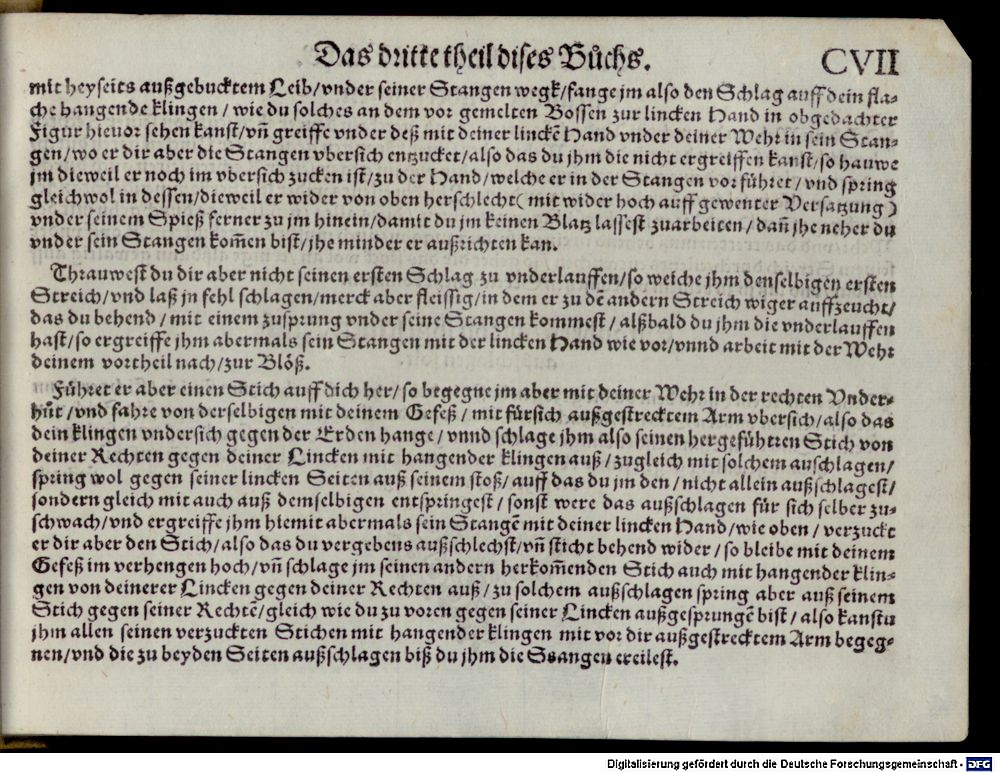 Das dritte theil dises Bůchs.
CVII
mit beyseits außgebucktem Leib/vnder seiner Stangen wegk/fange jm also den Schlag auff dein fla-
che hangende klingen / wie du solches an dem vor gemelten Bossen zur lincken Hand in obgedachter
Figur hieuor sehen kanst/vñ greiffe vnder deß mit deiner linckẽ Hand vnder deiner Wehr in sein Stan-
gen/wo er dir aber die Stangen vbersich entzucket/also das du jhm die nicht ergreiffen kanst/so hauwe
jm dieweil er noch im vbersich zucken ist/zu der Hand/welche er in der Stangen vor führet/ vnd spring
gleichwol in dessen/dieweil er wider von oben herschlecht( mit wider hoch auff gewenter Versatzung )
vnder seinem Spieß ferner zu jm hinein/damit du jm keinen Blatz lassest zuarbeiten/ dañ jhe neher du
vnder sein Stangen kom̃en bist/jhe minder er außrichten kan.
Thrauwest du dir aber nicht seinen ersten Schlag zu vnderlauffen/so weiche jhm denselbigen ersten
Streich/vnd laß jn fehl schlagen/merck aber fleissig/in dem er zu dẽ andern Streich wiger auffzeucht/
das du behend / mit einem zusprung vnder seine Stangen kommest / alßbald du jhm die vnderlauffen
hast/so ergreiffe jhm abermals sein Stangen mit der lincken Hand wie vor/vnnd arbeit mit der Wehr
deinem vortheil nach/zur Blöß.
Führet er aber einen Stich auff dich her/so begegne jm aber mit deiner Wehr in der rechten Vnder-
hůt /vnd fahre von derselbigen mit deinem Gefeß / mit fürsich außgestrecktem Arm vbersich/also das
dein klingen vndersich gegen der Erden hange/ vnnd schlage jhm also seinen hergeführten Stich von
deiner Rechten gegen deiner Lincken mit hangender klingen auß/zugleich mit solchem auschlagen/
spring wol gegen seiner lincken Seiten auß seinem stoß/ auff das du jm den/nicht allein außschlagest/
sondern gleich mit auch auß demselbigen entspringest / sonst were das außschlagen für sich selber zu-
schwach/vnd ergreiffe jhm hiemit abermals sein Stangẽ mit deiner lincken Hand/wie oben/ verzuckt
er dir aber den Stich/also das du vergebens außschlechst/vñ sticht behend wider /so bleibe mit deinem
Gefeß im verhengen hoch/vñ schlage jm seinen andern herkom̃enden Stich auch mit hangender klin-
gen von deinerer Lincken gegen deiner Rechten auß / zu solchem außschlagen spring aber auß seinem
Stich gegen seiner Rechtẽ/gleich wie du zu voren gegen seiner Lincken außgesprungẽ bist/ also kanstu
jhm allen seinen verzuckten Stichen mit hangender klingen mit vor dir außgestrecktem Arm begeg-
nen/vnd die zu beyden Seiten außschlagen biß du jhm die Ssangen ereilest.
Digitalisierung gefördert durch die Deutsche Forschungsgemeinschaft - DFG